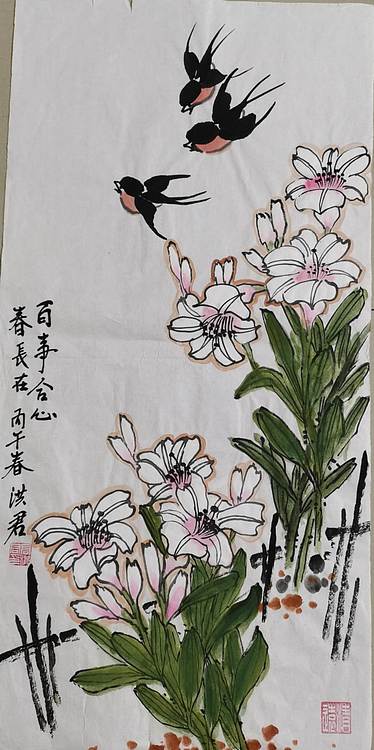 百事合心
春長在 丙午春 洪君